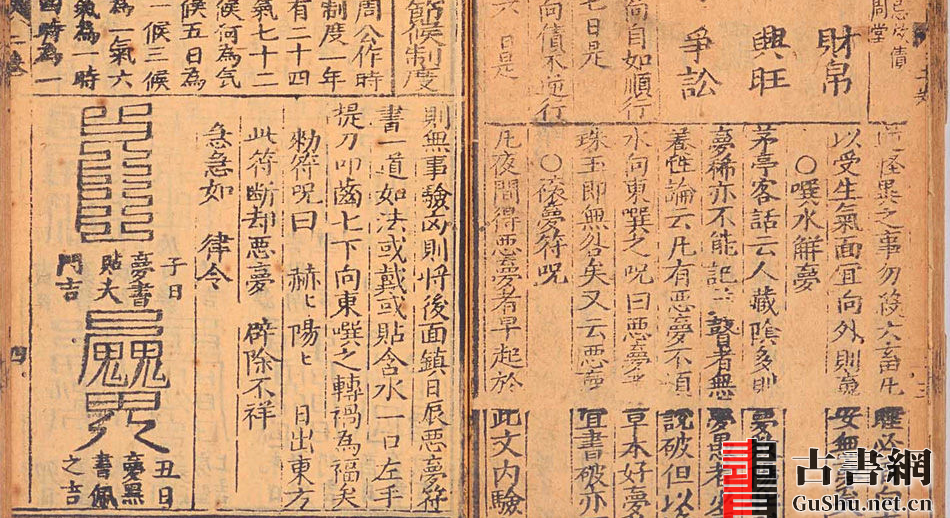 忌學債
周堂
財帛
興旺
爭訟
向自如順行
向債不逆行
七日是
六　日是
怪異之事勿飧六畜生
以受生氣面宜向外則
○噀水解夢
茅亭客話云人藏陰多則
夢稀亦不能記云瞽者無
養性論云凡有惡夢不須
水向東噀之呪曰惡夢
珠玉即無咎矣又云惡夢
○禳夢符呪
凡夜間得惡夢者早起於
說破但以
草木好夢
宜書破亦
此文內驗
節候制度
周公作時
制度一年
有二十四
氣七十二
候何為氣
候五日為
一候三候
為一氣六
氣為一時
四時為一
則無事驗凶則將後面鎮日辰惡夢符
書一道如法或戴或貼含水一口左手
提刀叩齒七下向東噀之轉禍為福矣
勑符呪曰　赫ヒ陽ヒ　日出東方
此符断却惡夢　辟除不祥
急急如　律令
子日
夢書
貼大
門吉
丑日
夢墨
書佩
之吉
四
古書網
GuShu.net.cn